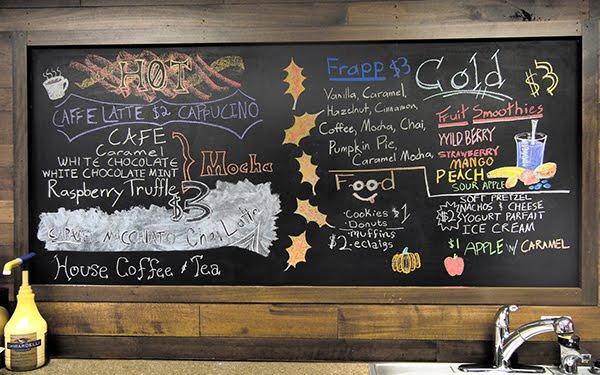 HOT
CAFFE LATTE $2 CAPPUCINO
CAFE
Caramel
WHITE CHOCOLATE
WHITE CHOCOLATE MINT
Raspberry Truffle
Mocha
$3
CARAMEL MACCHIATO Chai Latte
House Coffee & Tea
Frapp $3
Vanilla, Caramel,
Hazelnut, Cinnamon
Coffee, Mocha, Chai,
Pumpkin Pie,
Caramel Mocha,
Food
Cookies $1
Donuts
Muffins
$2-eclairs
Cold $3
Fruit Smoothies
WILD BERRY
STRAWBERRY
MANGO
PEACH
SOUR APPLE
SOFT PRETZEL
$2 NACHOS & CHEESE
YOGURT PARFAIT
ICE CREAM
$1 APPLE w/ CARAMEL
GHIRARDELLI